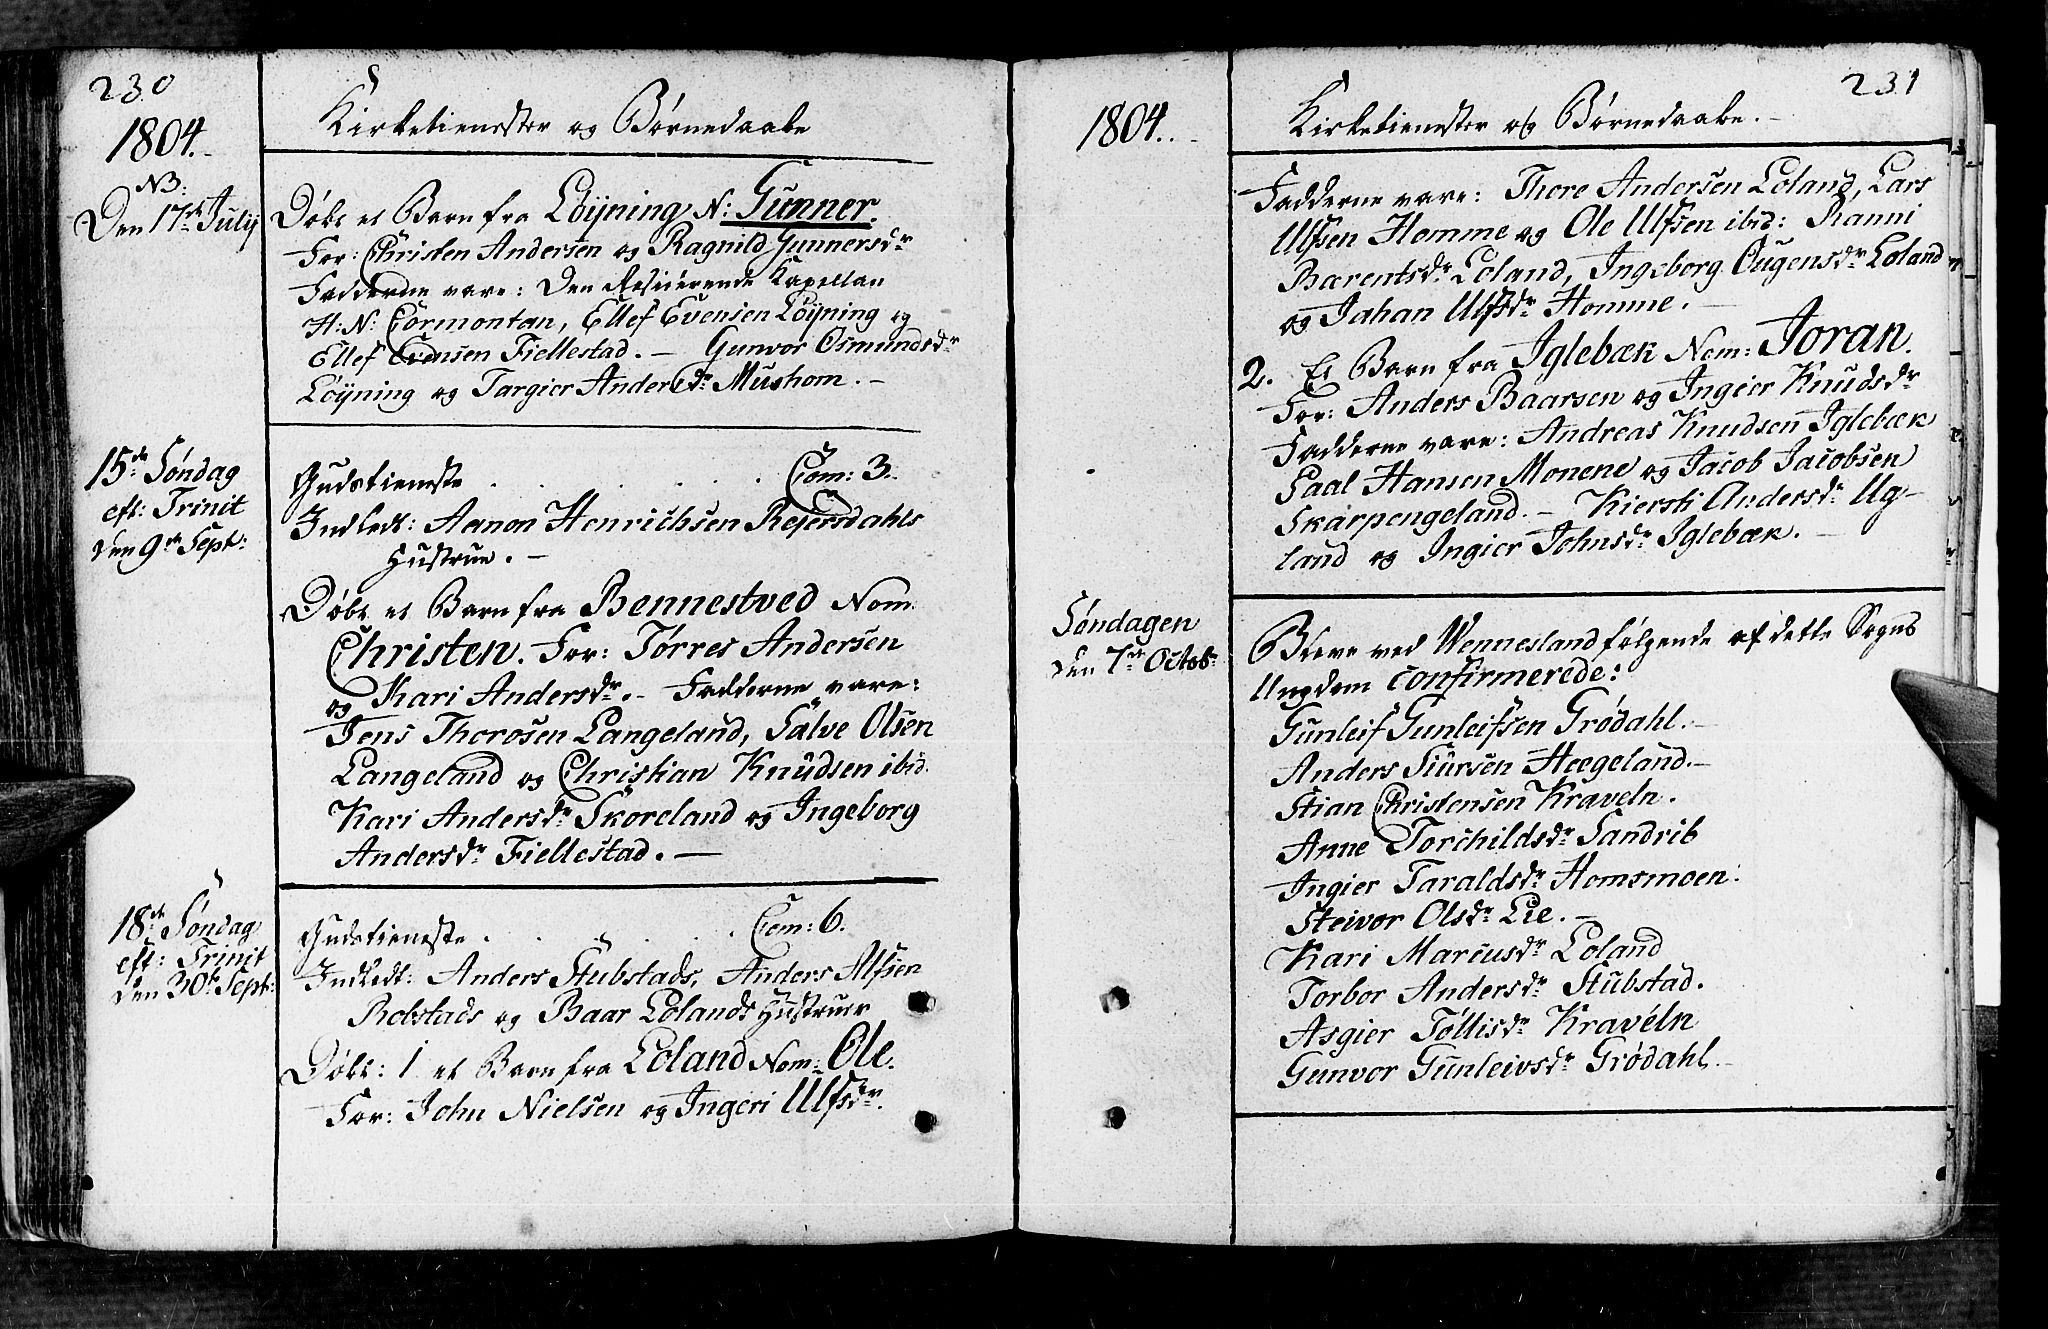 230
1804.
Kirketienester og Børnedaabe
NB:
Den 17de Julij
Døbt et Barn fra Löyning N: Gunner.
For: Christen Andersen og Ragnild Gunnersdr
Fadderne vare: Den Residerende Kapellan
H: N: Cormontan, Ellef Evensen Löyning og
Ellef Evensen Fiellestad. — Gunvor Osmundsdr
Löyning og Targier Andersdr Mushom. —
15de Søndag
eft: Trinit
den 9de Sept:
Gudstieneste . . . . . . Com: 3.
Indledt: Aamon Henrichsen Rejersdahls
Hustrue. —
Døbt et Barn fra Bennestved Nom:
Christen. For: Tørres Andersen
og Kari Andersdr. — Fadderne vare:
Jens Thorosen Langeland, Salve Olsen
Langeland og Christian Knudsen ibid.
Kari Andersdr Skoreland og Ingeborg
Andersdr Fiellestad. —
18de Søndag
eft: Trinit
den 30te Sept:
Gudstieneste . . . . . Com: 6.
Indledt: Anders Stubstads, Anders Alfsen
Robstads og Baar Lolands Hustruer
Døbt: 1. et Barn fra Loland Nom: Ole.
For: John Nielsen og Ingeri Ulfsdr.
1804.
Kirketienester og Børnedaabe. —
231
Fadderne vare: Thore Andersen Loland, Lars
Ulfsen Homme og Ole Ulfsen ibid: Ranni
Bærentsdr Loland, Ingeborg Ougensdr Loland
og Jahan Ulfsdr Homme. —
2. Et Barn fra Iglebæk Nom: Joran.
For: Anders Baarsen og Ingier Knudsdr
Fadderne vare: Andreas Knudsen Iglebæk
Paal Hansen Monene og Jacob Jacobsen
Skarpengeland. — Kiersti Andersdr Ug-
land og Ingier Johnsdr Iglebæk. —
Søndagen
den 7de Octob:
Bleve ved Wennesland følgende af dette Sogns
Ungdom confirmerede:
Gunleif Gunleifsen Grödahl. —
Anders Siursen Hægeland. —
Stian Christensen Kraveln.
Anne Torchildsdr Sandrib
Ingier Taraldsdr Homsmoen:
Steivor Olsdr Lie. —
Kari Marcusdr Loland
Torbor Andersdr Stubstad.
Asgier Töllisdr Kraveln
Gunvor Gunleivsdr Grödahl. —